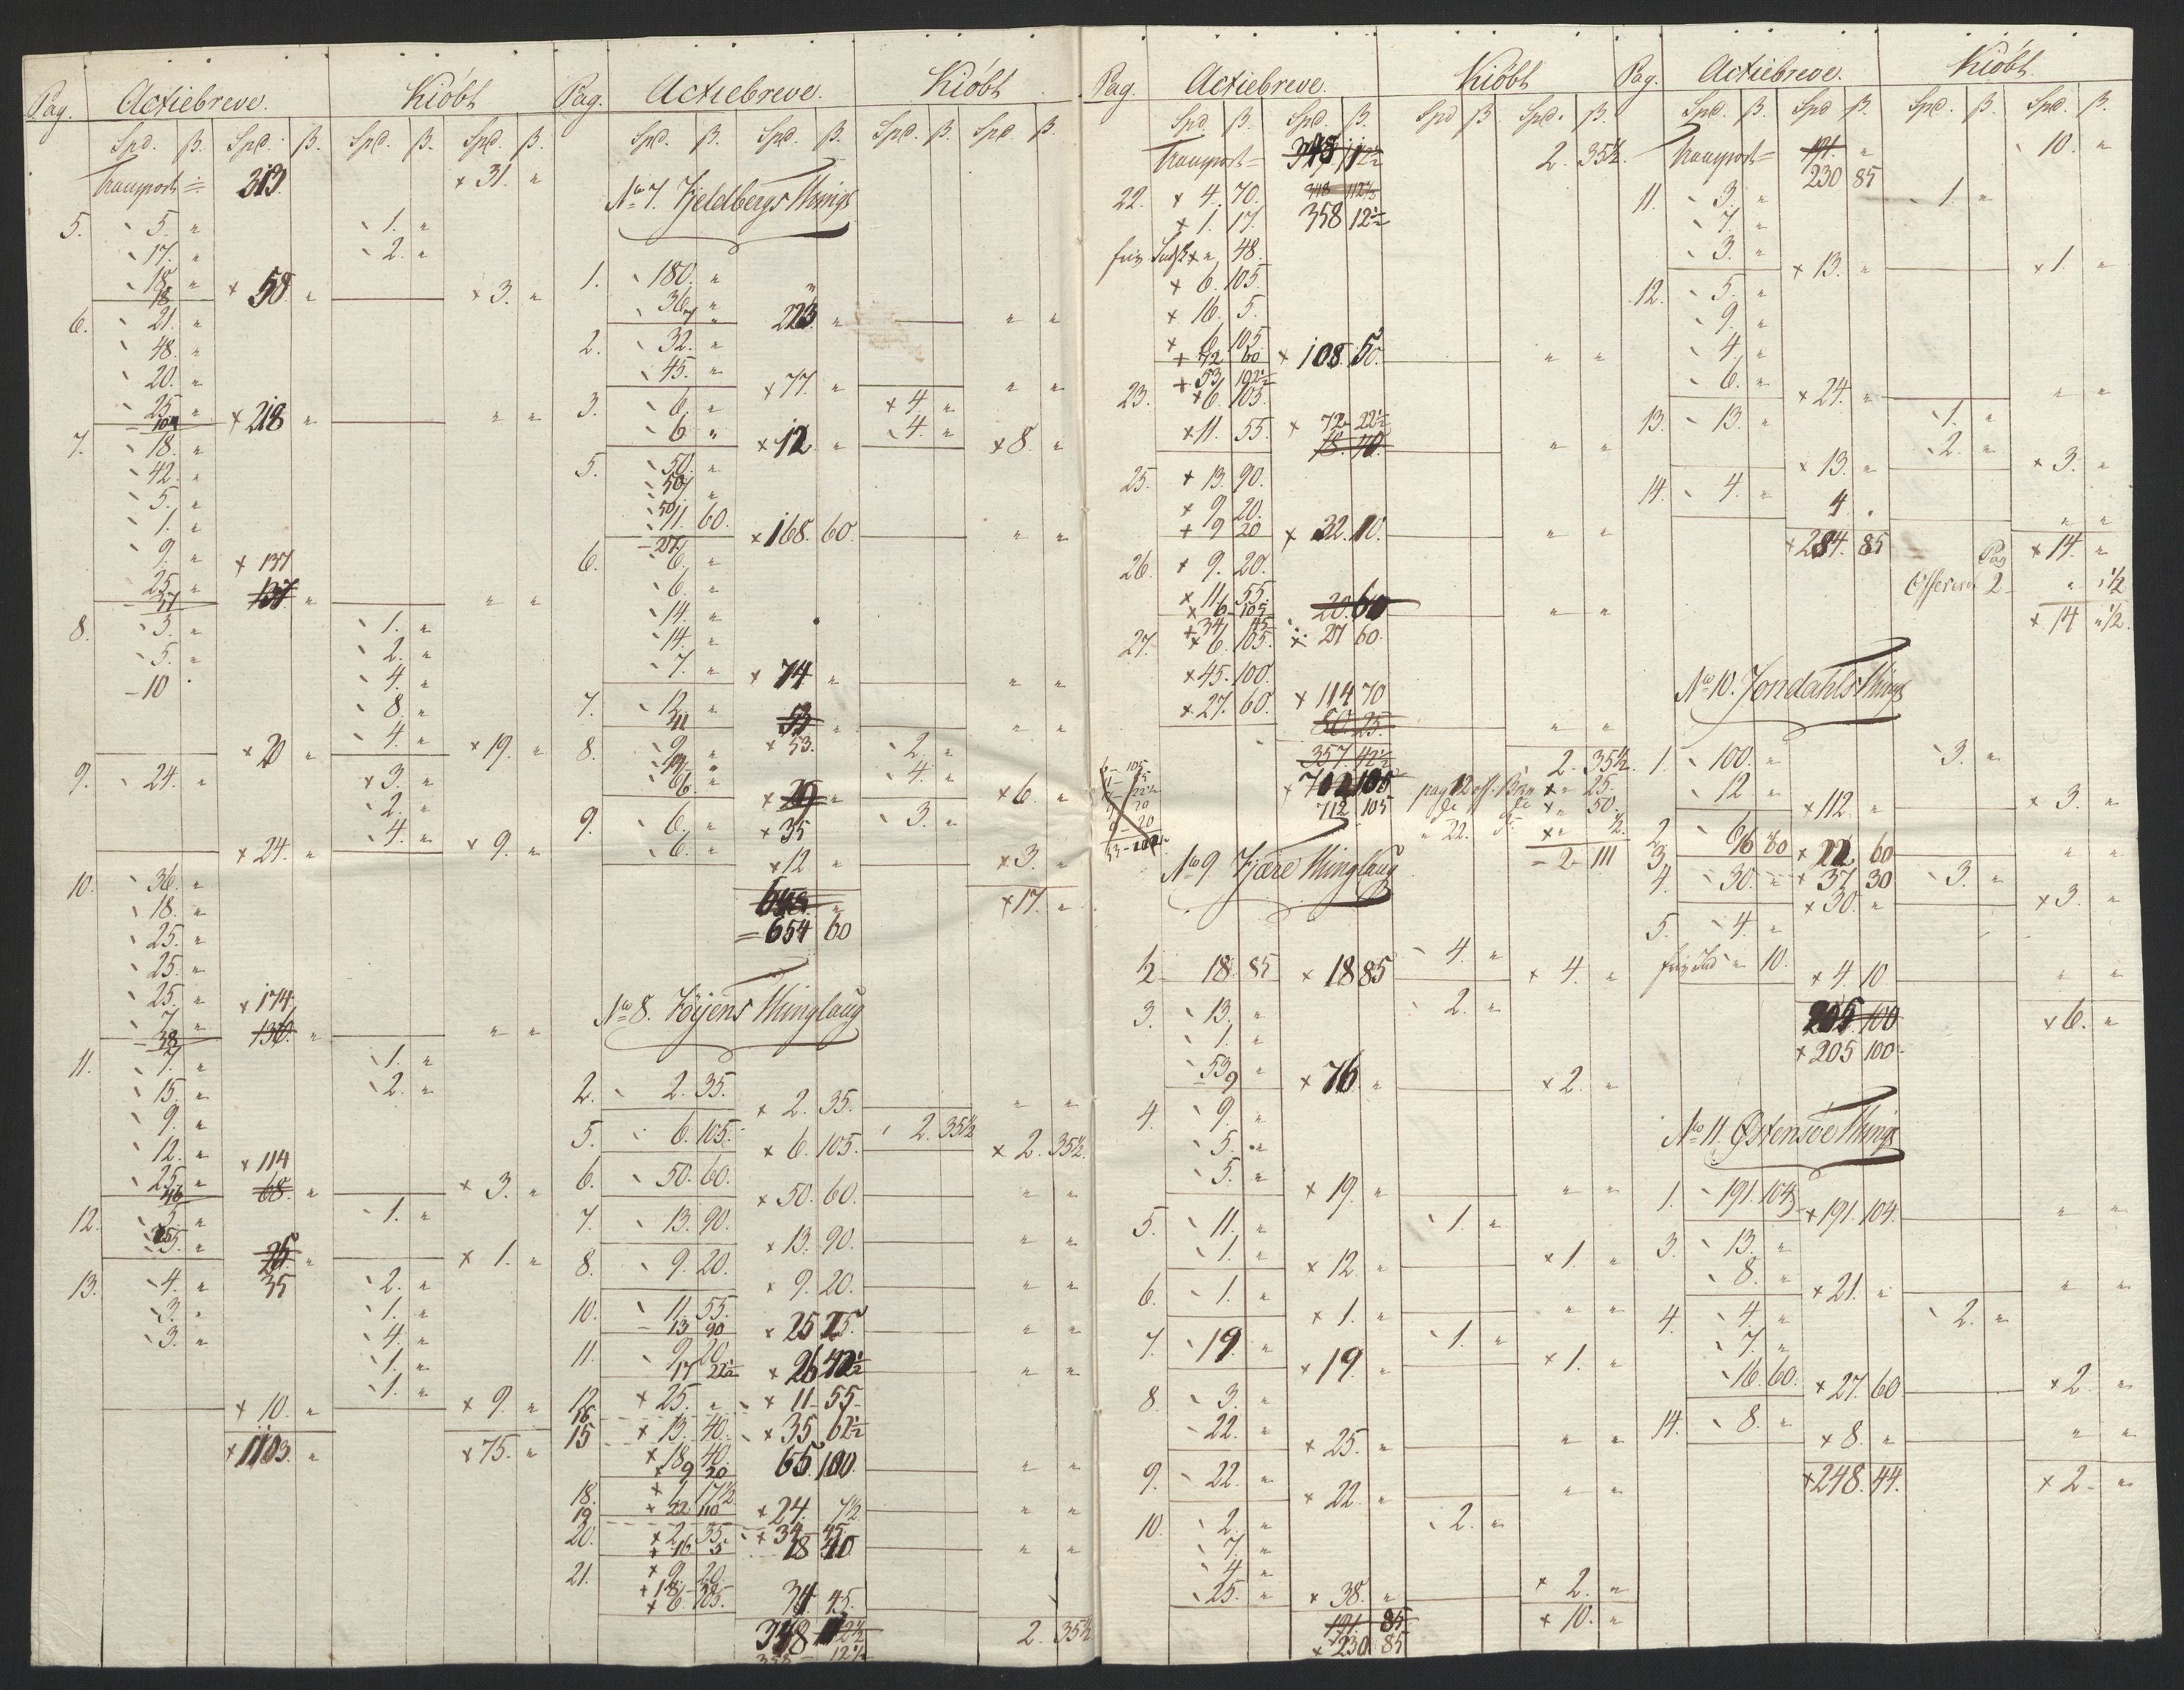 Pag. Actiebreve. Kiöbt
Spd. ß. Spd. ß. Spd. ß. Spd. ß.
Transport = 313. × 31. "
5. 5. " 1. "
17. " 2. "
18. "
18 × 58 " × 3. "
6. 21. "
48. "
20. "
25. "
104 × 218 " " "
7. 18. "
42. "
5. "
1. "
9. " × 137
25. " 137. "
37 " "
8. 3. " 1. "
5. " 2. "
10 4. "
8. "
4. "
× 20 " × 19. "
9. 24. " × 3. "
2. "
4. "
× 24. " × 9. "
10. 36. "
18. "
25. "
25. "
25. " × 174
7. " 136. "
38 " "
11. 7. " 1. "
15. " 2. "
9. "
12. " × 114
25. " 68. "
46 × 3. "
12. 5. " 1. "
25. " 26 "
35 × 1. "
13. 4. " 2. "
3. " 1. "
3. " 4. "
1. "
1. "
× 10. " × 9. "
× 1103. " × 75. "
Pag. Actiebreve. Kiöbt
Spd. ß. Spd. ß. Spd. ß. Spd. ß.
No 7. Fjeldbergs Things
1. 180. "
36. "
7 " 223. " " "
2. 32. "
45. "
× 77. " " "
3. 6. " × 4. "
6. " × 12. " 4. " × 8. "
5. 50. "
50. "
11. 60. × 168. 60. " "
6. 6. "
6. "
14. "
14. "
7. " × 74 " " "
7. 12. "
41 53 " " "
8. 9. " × 53. 2. "
6. " 4. "
× 6. "
9. 6. " × 35 3. "
6. "
× 12 " × 3. "
× 17. "
= 654 60
No 8. Föyens Thinglaug
2. 2. 35.
× 2. 35. " "
5. 6. 105. 2. 35½
× 6. 105. × 2. 35½.
6. 50. 60.
× 50. 60. " "
7. 13. 90.
× 13. 90. " "
8. 9. 20.
× 9. 20. " "
10. 11. 55.
13 90 × 25 25. " "
11. 9. 20
17 22½ × 26 42½ " "
12 × 25. " × 11 55
16 × 13. 40. × 35 62½
15 × 18. 40.
× 9 20 65. 100. " "
18. × 1. 17½
19 × 22 110 × 24. 7½ " "
20. × 2. 35. × 34 45
× 16 5 18 40 " "
21. × 9. 20.
× 18.
× 6. 105. 34 45.
348 112½ 2. 35½
358 12½
Pag. Actiebreve. Kiöbt
Spd. ß. Spd. ß. Spd ß Spd. ß.
Transport = 348 112½ 2. 35½.
22. × 4. 70. 348 112½
× 1. 17. 358 12½
48.
× 6. 105.
× 16. 5.
× 6. 105.
× 72 60 × 108. 50. " "
× 53 102½
23. × 6. 105.
× 11. 55. × 72 22½
18. 40. " "
25. × 13. 90.
× 9. 20.
× 9 20 × 32. 10. " "
26. × 9. 20.
× 11. 55.
× 6 105 20. 60 " "
× 34 45
27. × 6. 105. × 27 60.
× 45. 100.
× 27. 60. × 114 70
80. 25. " "
357. 42½ 2. 35½.
× 712 105 × " 25.
712. 105 × " 50.
" 22. × " ½.
= 2 111
No 9 Fjære Thinglaug
½ 18. 85 × 18 85 4. " × 4. "
3. 13. " 2. "
1. "
53 "
9 × 76. " × 2. "
4. 9. "
5. "
5. "
× 19. " " "
5. 11. " 1. "
1. "
× 12. " × 1. "
6. 1. "
× 1. " " "
7. 19. " 1. "
× 19. " × 1. "
8. 3. "
22. "
× 25. " " "
9. 22. "
× 22. " " "
10. 2. " 2. "
7. "
4. "
25. " × 38. " × 2. "
191. 85 × 10. "
× 230 85
Pag. Actiebreve. Kiöbt
Spd. ß. Spd ß. Spd. ß. Spd. ß.
Transport = 191. " 10. "
230 85
11. 3. " 1. "
7. "
3. "
× 13. " × 1. "
12. 5. "
9. "
4. "
6. "
× 24. " " "
13. 13. " 1. "
2. "
× 13. " × 3. "
14. 4. "
4. " " "
× 284. 85 Pag × 14. "
2 " 1½
× 14 " ½.
No 10. Jondahls Things
1. 100. " 3. "
12 "
× 112. " × 3. "
2.
× 22 60 " "
3 × 37 30
4. 30. " 3. "
× 30. " × 3. "
5. 4. "
10. × 4. 10 " "
205. 100 × 6. "
× 205 100
No 11. Østensöe Things
1. 191. 104
× 191. 104. " "
3. 13. "
8. "
× 21. " " "
4. 4. " 2. "
7. "
16. 60.
× 27. 60 × 2. "
14. 8. "
× 8. " " "
× 248. 44. × 2. "